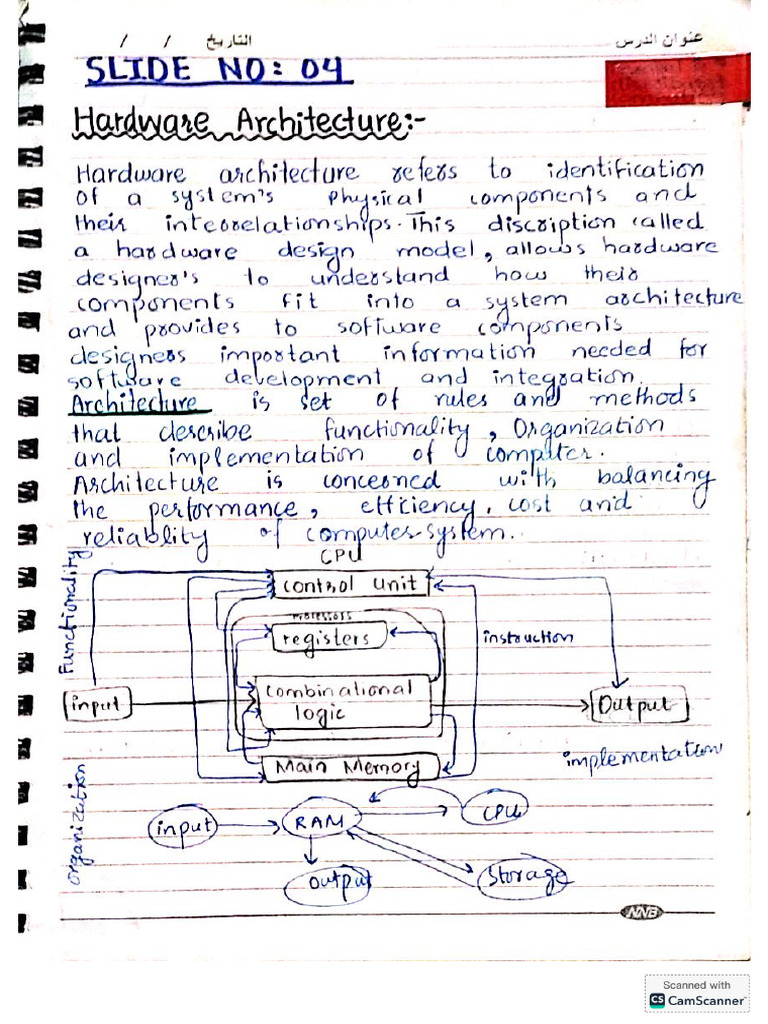 التاريخ / /
عنوان الدرس
SLIDE NO: 04
Hardware Architecture:-
Hardware architecture refers to identification
of a system's physical components and
their interrelationships. This discription called
a hardware design model, allows hardware
designer's to understand how their
components fit into a system architecture
and provides to software components
designers important information needed for
software development and integration.
Architecture is set of rules and methods
that describe functionality, Organization
and implementation of computer.
Architecture is concerned with balancing
the performance, efficiency, cost and
reliablity of computer system.
CPU
Functionality
control Unit
Processors
registers
instruction
input
combinational
logic
Output
Main Memory
implementation
organization
input
RAM
CPU
output
Storage
NNB
Scanned with
CS CamScanner